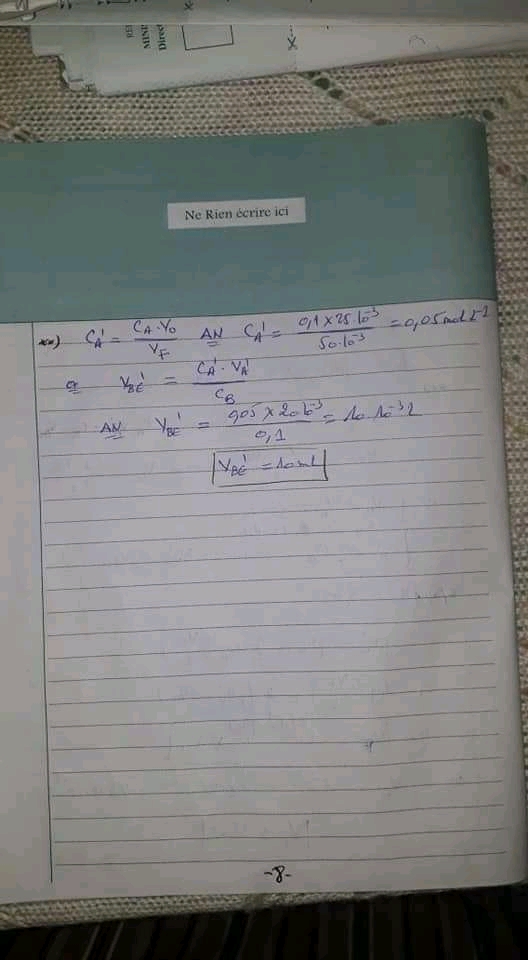 REP
MINIS
Direct
Ne Rien écrire ici
xx) C'A = CA·V0 / VF AN C'A = 0,1 x 25·10⁻³ / 50·10⁻³ = 0,05 mol L⁻¹
or V'BE = C'A · V'A / CB
AN V'BE = 0,05 x 20·10⁻³ / 0,1 = 10·10⁻³ L
V'BE = 10 mL
-8-